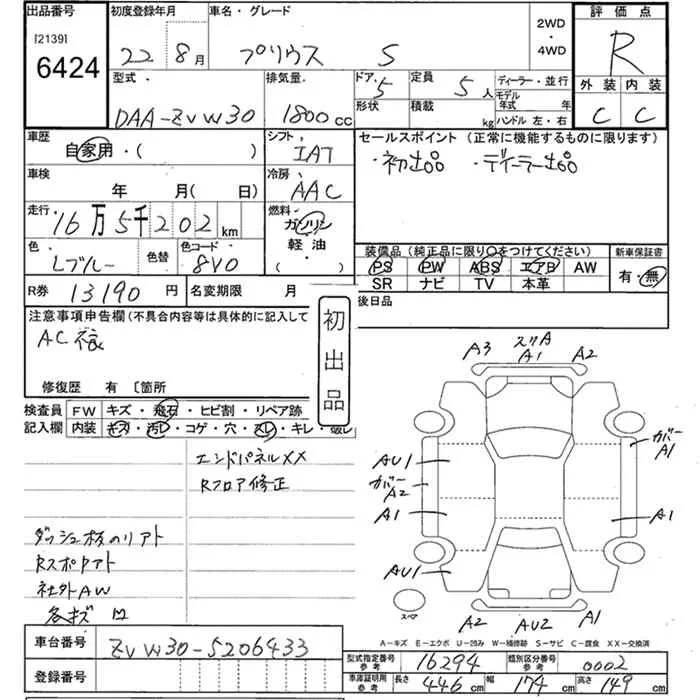 出品番号
[2139]
6424
初度登録年月
22年 8月
車名・グレード
プリウス S
2WD
・
4WD
評価点
R
外装 内装
C C
型式
DAA-ZVW30
排気量
1800cc
ドア 5
形状
定員 5人
積載 kg
ディーラー・並行
モデル年式 年
ハンドル 左・右
車歴
自家用・( )
シフト
IAT
セールスポイント (正常に機能するものに限ります)
・初出品 ・ディーラー出品
車検
年 月( 日)
冷房
AAC
走行
16万5千202km
燃料
ガソリン
軽油
( )
色
Lブルー
色替
色コード
8V0
装備品 (純正品に限り○をつけてください)
PS PW ABS エアB AW
SR ナビ TV 本革
新車保証書
有・無
R券 13190円
名変期限 月
後日品
注意事項申告欄(不具合内容等は具体的に記入して
初出品
修復歴 有 〔箇所
検査員 FW キズ・飛石・ヒビ割・リペア跡
記入欄 内装 キズ・汚レ・コゲ・穴・スレ・キレ・破レ
エンドパネルXX
Rフロア修正
社外AW
A3 A1 A2
カバーA1
AU1
カバーA2
A1 A1
AU1
スペア
A2 AU2 A1
A-キズ E-エクボ U-凹み W-補修跡 S-サビ C-腐食 XX-交換済
車台番号 ZVW30-5206433
登録番号
型式指定番号参考 16294 類別区分番号参考 0002
車庫証明用参考 長さ 446cm 幅 174cm 高さ 149cm